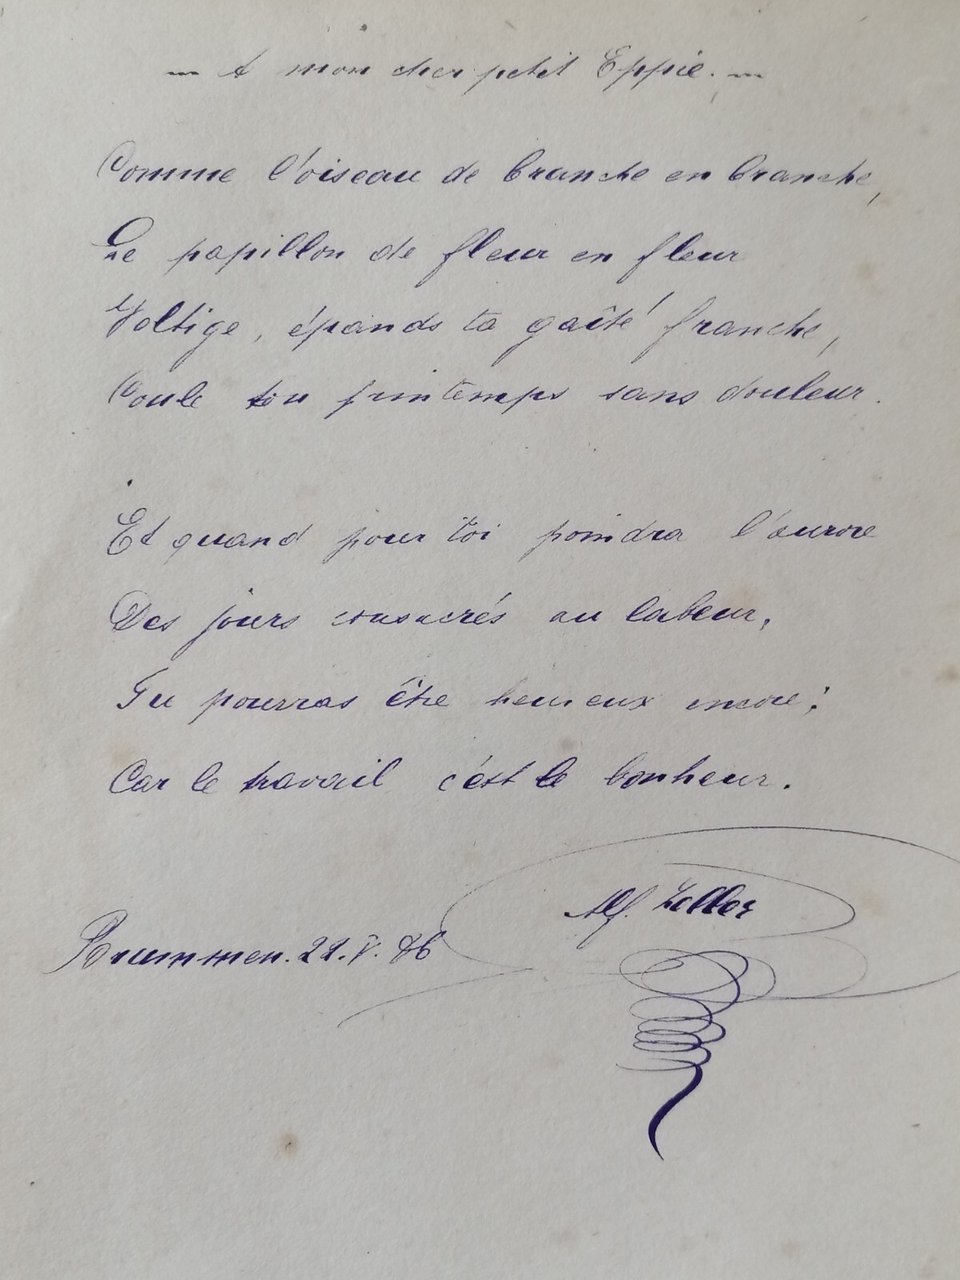 A mon cher petit Eppie.
Comme l'oiseau de branche en branche,
Le papillon de fleur en fleur
Voltige, épands ta gaîté franche,
Coule ton printemps sans douleur.
Et quand pour toi poindra l'aurore
Des jours consacrés au labeur,
Tu pourras être heureux encore;
Car le travail c'est le bonheur.
Alf. Zeller
Brummen. 22. V. 86